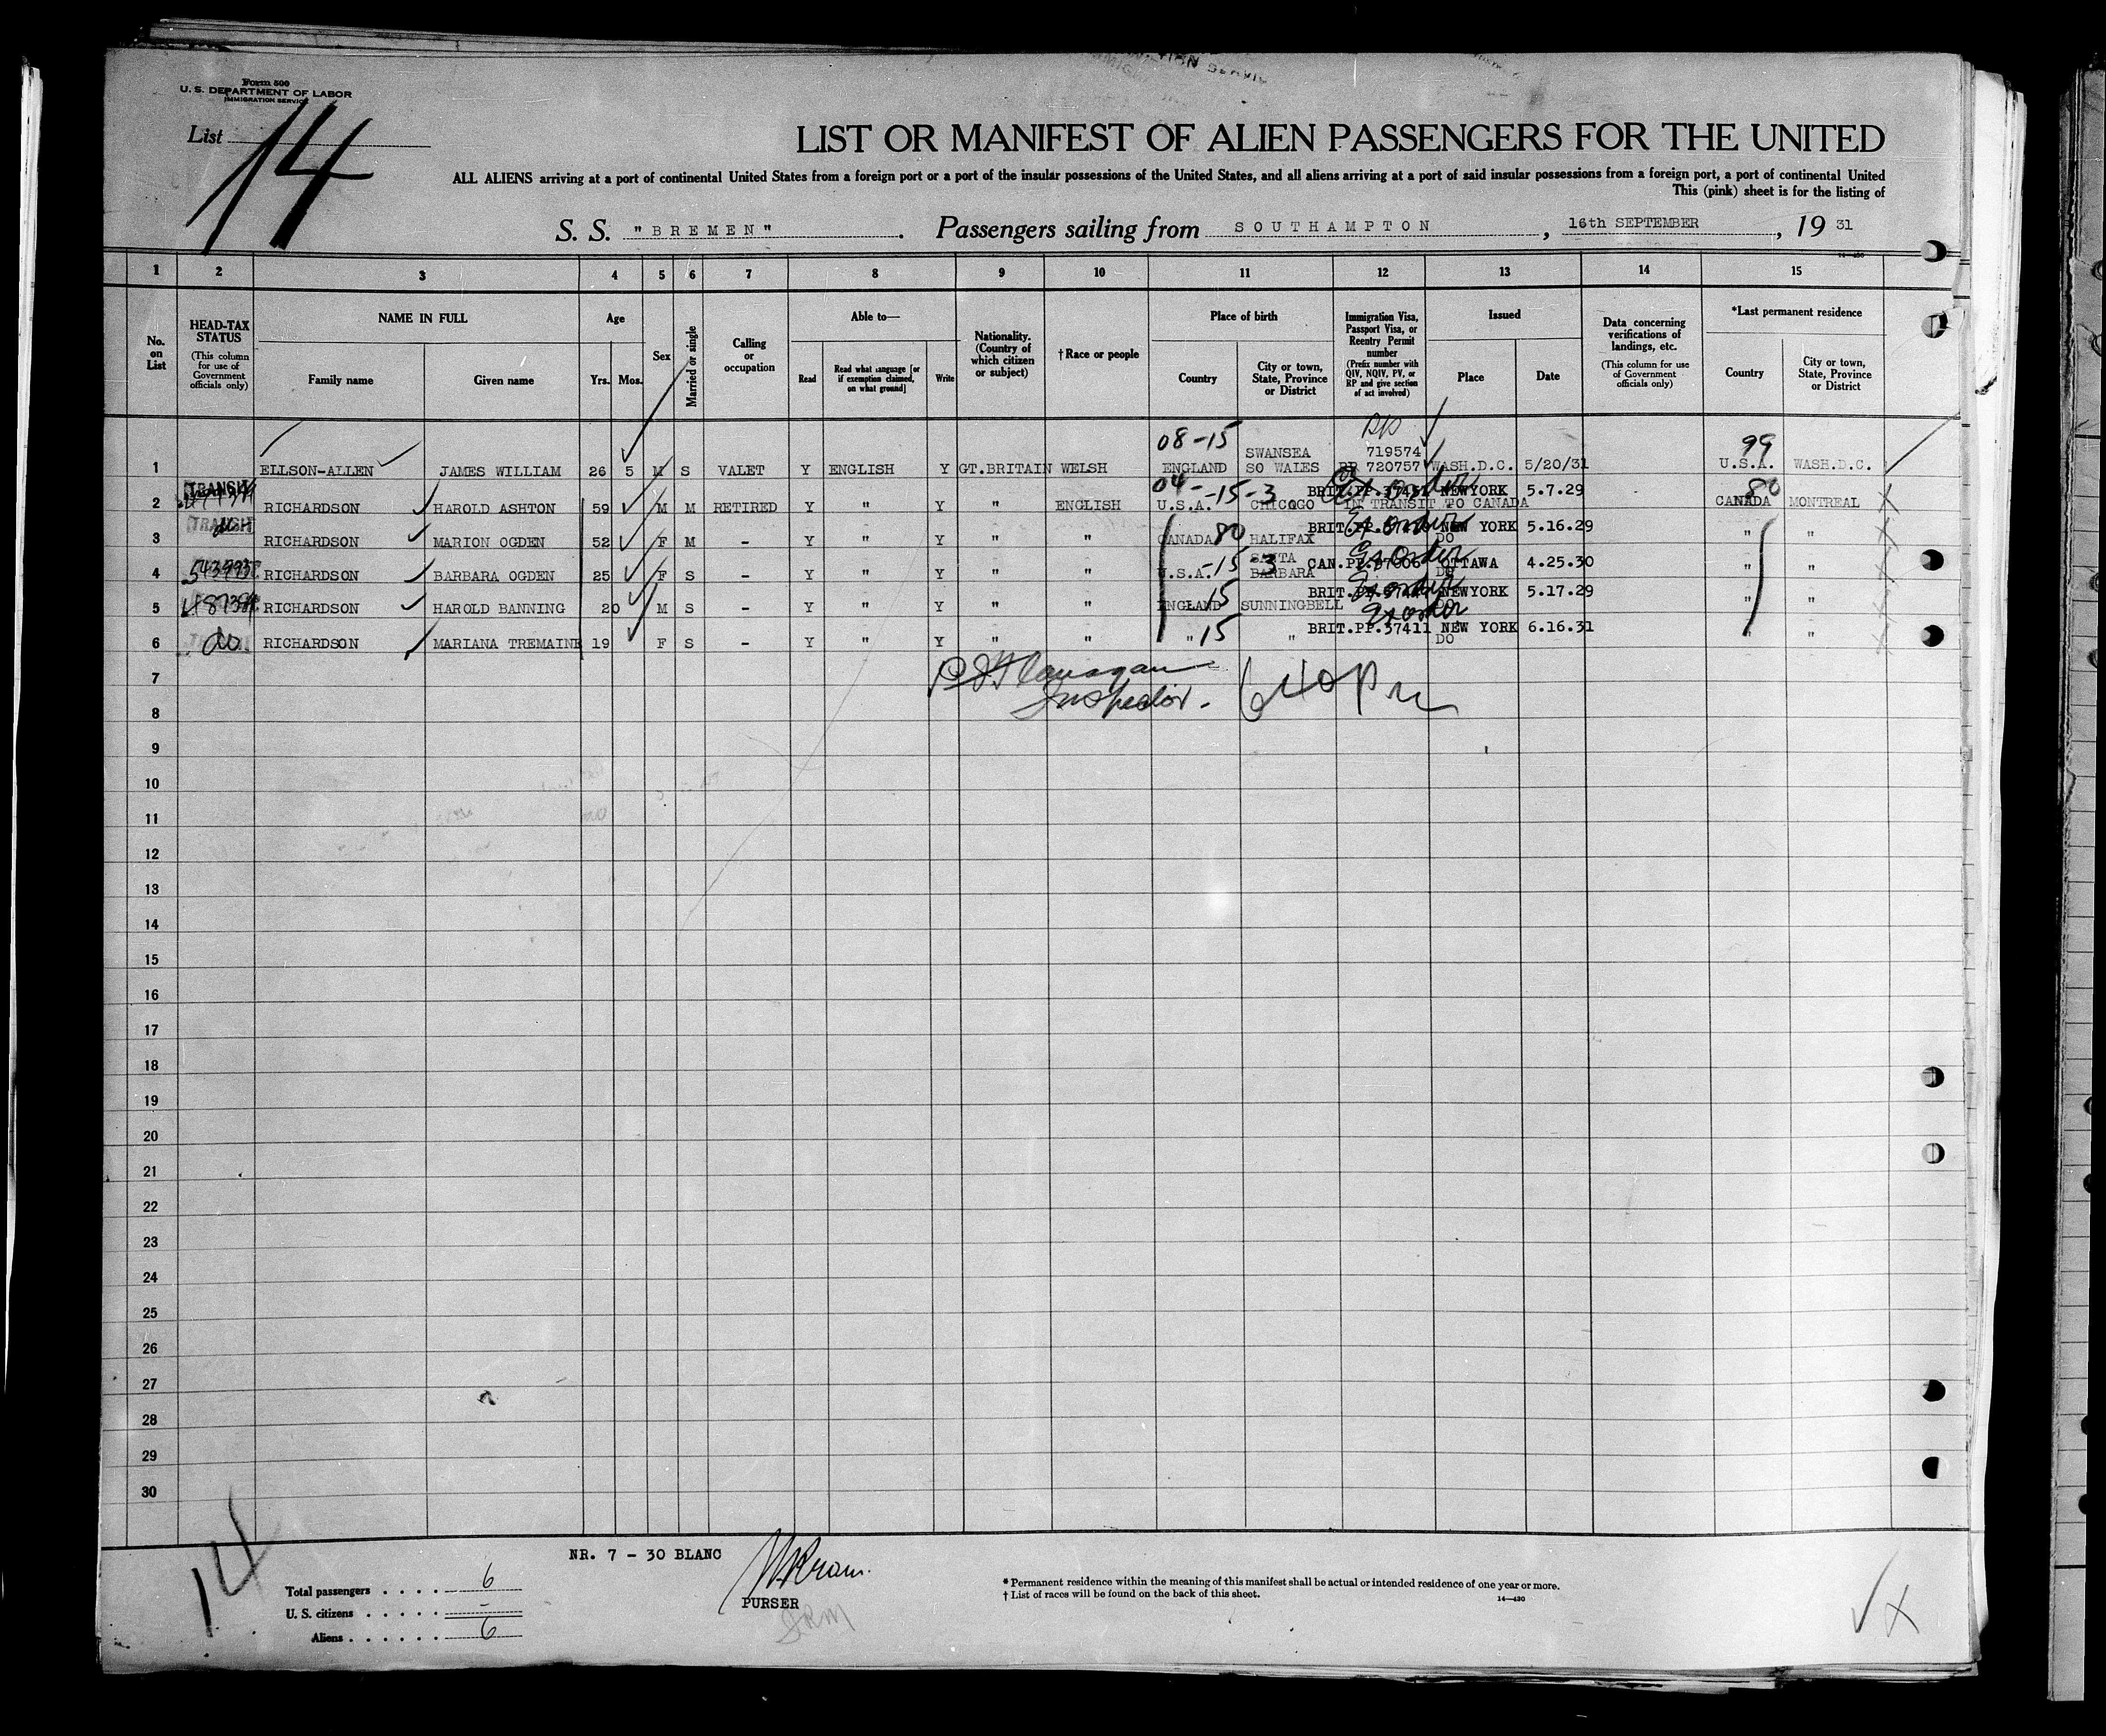 Form 500
U. S. DEPARTMENT OF LABOR
IMMIGRATION SERVICE
List 14
LIST OR MANIFEST OF ALIEN PASSENGERS FOR THE UNITED
ALL ALIENS arriving at a port of continental United States from a foreign port or a port of the insular possessions of the United States, and all aliens arriving at a port of said insular possessions from a foreign port, a port of continental United
This (pink) sheet is for the listing of
S. S. "BREMEN". Passengers sailing from SOUTHAMPTON, 16th SEPTEMBER, 19 31
14—430
1 2 3 4 5 6 7 8 9 10 11 12 13 14 15
No. on List
HEAD-TAX STATUS (This column for use of Government officials only)
NAME IN FULL Family name Given name
Age Yrs. Mos.
Sex
Married or single
Calling or occupation
Able to— Read Read what language [or if exemption claimed, on what ground] Write
Nationality. (Country of which citizen or subject)
† Race or people
Place of birth Country City or town, State, Province or District
Immigration Visa, Passport Visa, or Reentry Permit number (Prefix number with QIV, NQIV, PV, or RP and give section of act involved)
Issued Place Date
Data concerning verifications of landings, etc. (This column for use of Government officials only)
*Last permanent residence Country City or town, State, Province or District
08-15 SWANSEA 719574 99
1 ELLSON-ALLEN JAMES WILLIAM 26 5 M S VALET Y ENGLISH Y GT.BRITAIN WELSH ENGLAND SO WALES RP 720757 WASH.D.C. 5/20/31 U.S.A. WASH.D.C.
TRANSIT 04- -15-3 BRIT.PP. NEWYORK 5.7.29 80
2 RICHARDSON HAROLD ASHTON 59 M M RETIRED Y " Y " ENGLISH U.S.A. CHICAGO IN TRANSIT TO CANADA CANADA MONTREAL
TRANSIT do BRIT.PP. NEW YORK 5.16.29
3 RICHARDSON MARION OGDEN 52 F M - Y " Y " " CANADA 80 HALIFAX DO " "
SANTA CAN.PP. OTTAWA 4.25.30
4 RICHARDSON BARBARA OGDEN 25 F S - Y " Y " " U.S.A. -15 3 BARBARA DO " "
15 BRIT. NEWYORK 5.17.29
5 RICHARDSON HAROLD BANNING 20 M S - Y " Y " " ENGLAND SUNNINGBELL " "
BRIT.PP.37411 NEW YORK 6.16.31
6 do RICHARDSON MARIANA TREMAINE 19 F S - Y " Y " " " 15 " DO " "
7
Inspector.
8
9
10
11
12
13
14
15
16
17
18
19
20
21
22
23
24
25
26
27
28
29
30
14
NR. 7 - 30 BLANC
Total passengers . . . . 6
U. S. citizens . . . . . -
Aliens . . . . . . 6
PURSER
* Permanent residence within the meaning of this manifest shall be actual or intended residence of one year or more.
† List of races will be found on the back of this sheet.
14—430